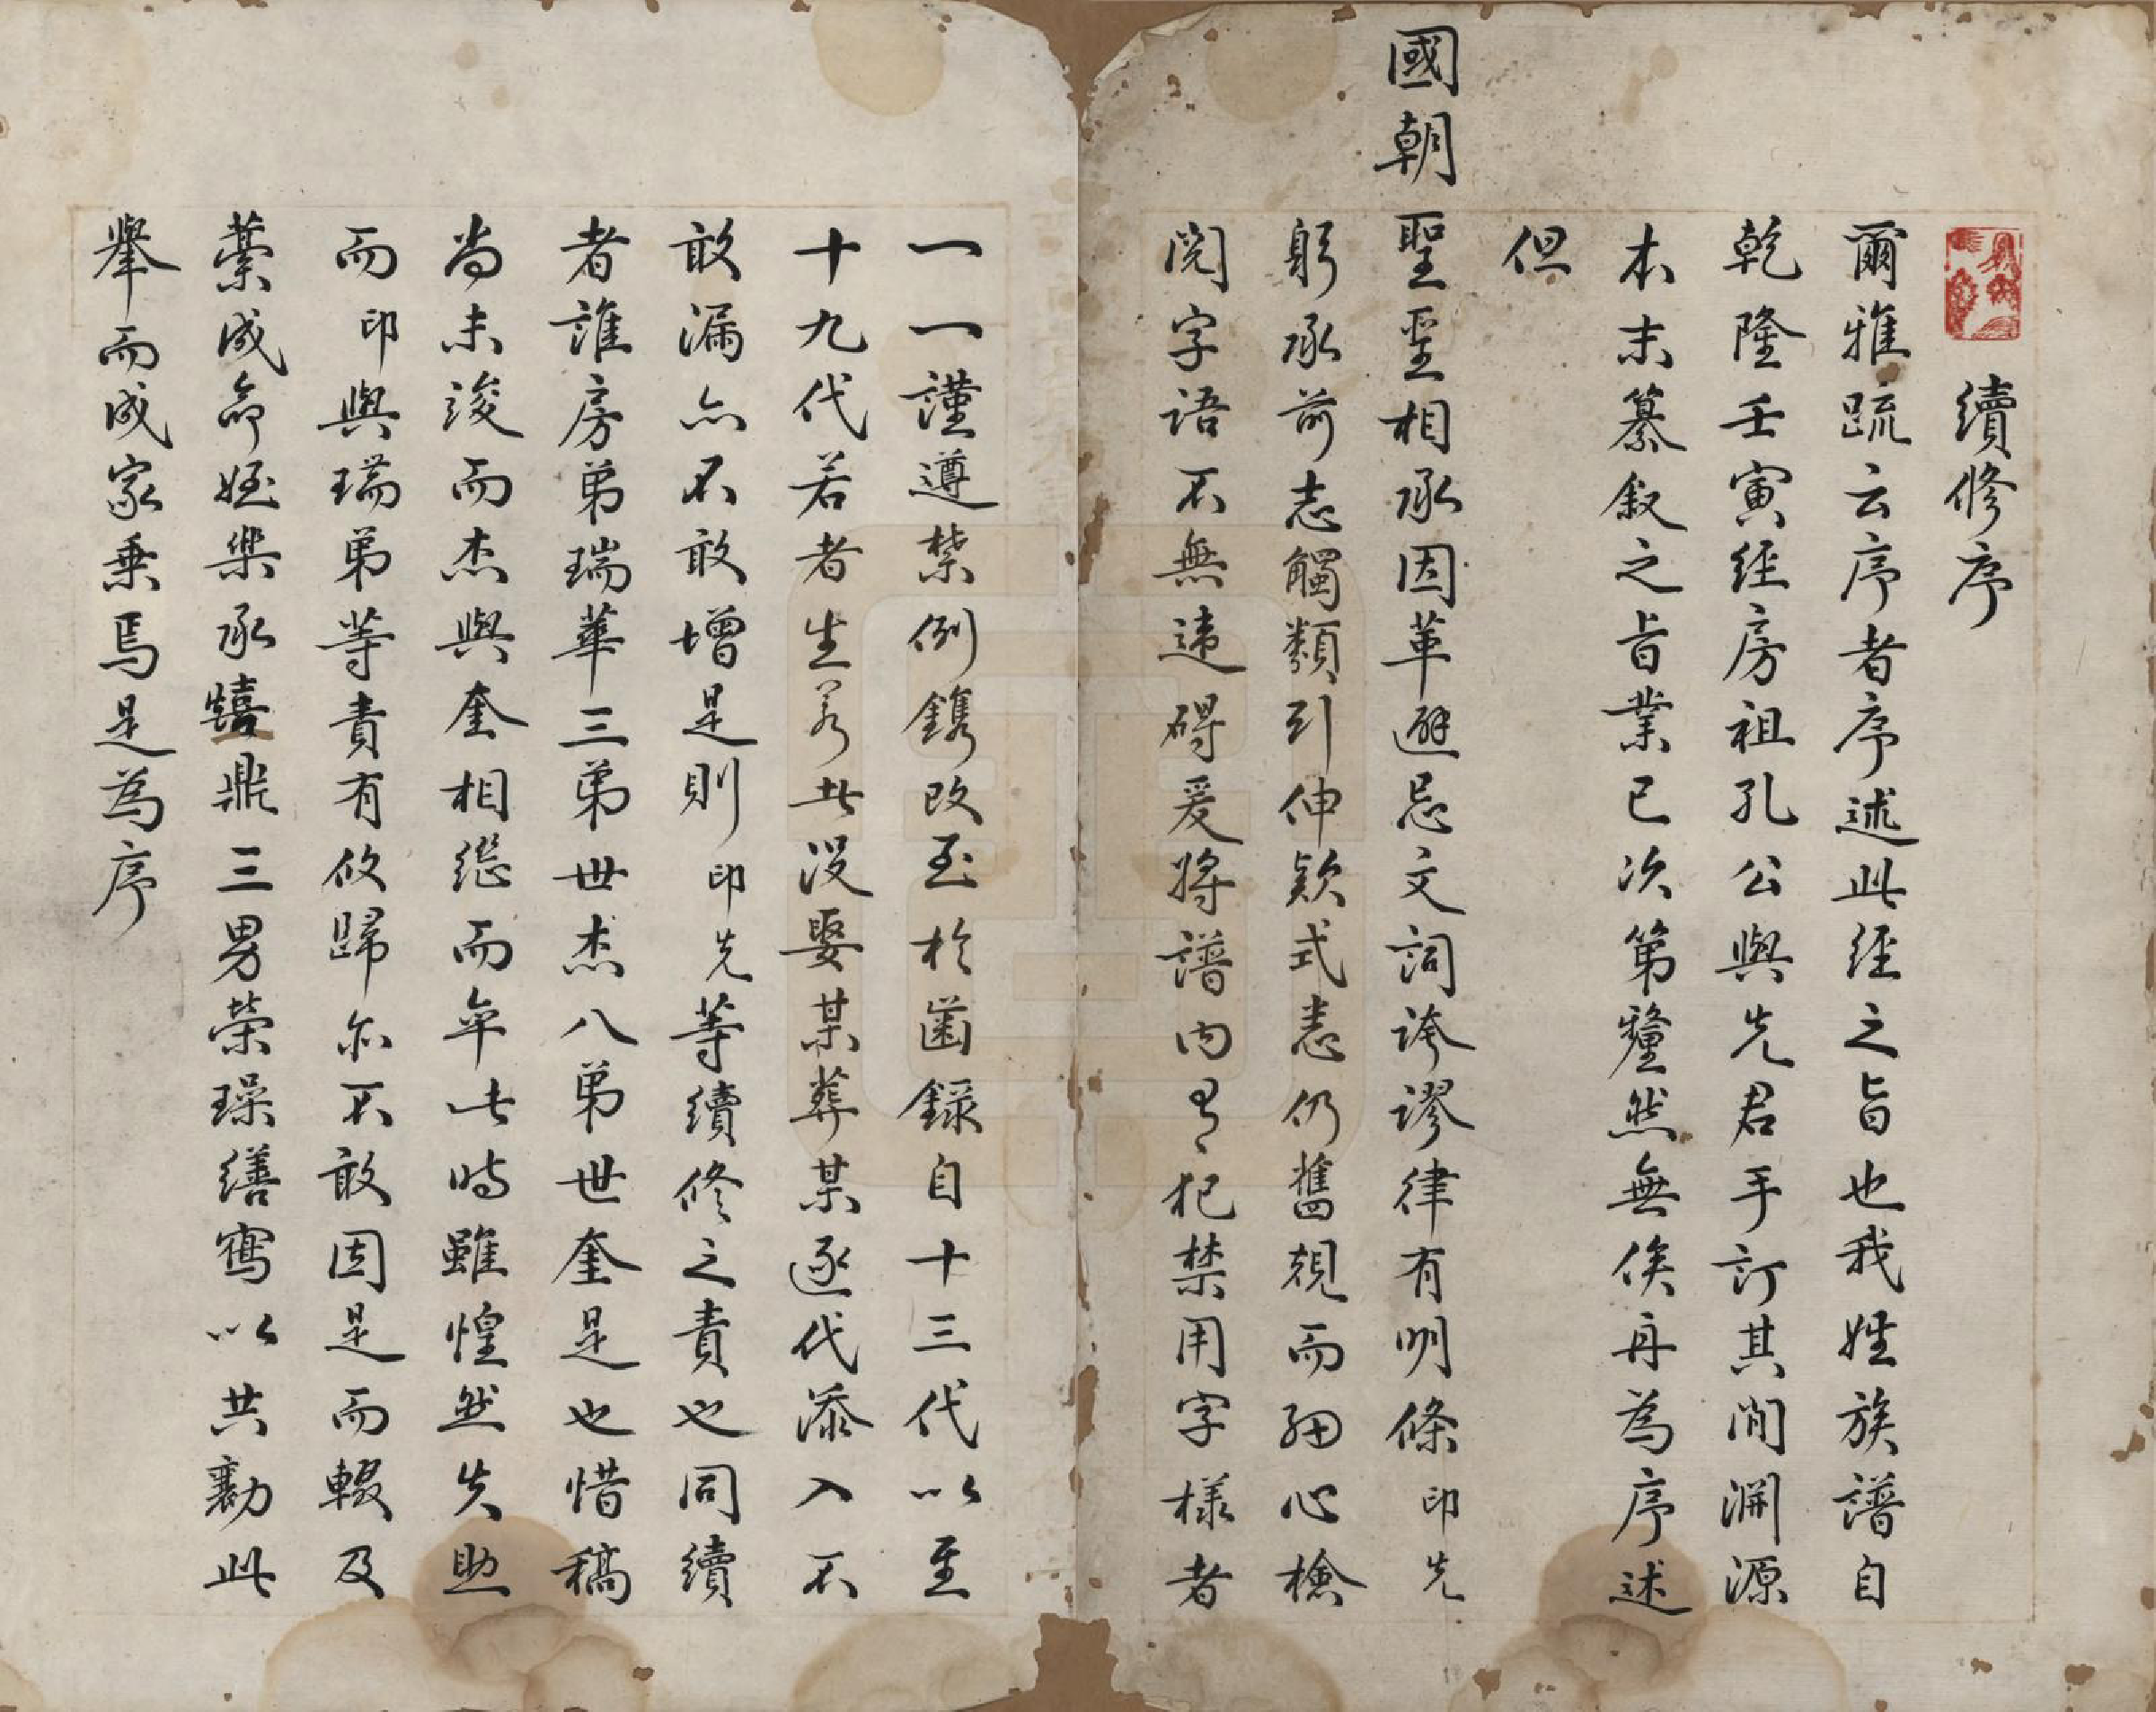 續修序
爾雅疏云序者序述此經之旨也我姓族譜自
乾隆壬寅經房祖孔公與先君手訂其間淵源
本末纂叙之旨業已次第釐然無俟再為序述
但
國朝聖聖相承因革避忌文詞誇謬律有明條印先
躬承前志觸類引伸欵式悉仍舊規而細心檢
閱字語不無違碍爰將譜內有犯禁用字樣者
一一謹遵禁例鐫改至於齒錄自十三代以至
十九代若者生若此沒娶某葬某逐代添入不
敢漏亦不敢增是則印先等續修之責也同續
者誰房弟瑞華三弟世杰八弟世奎是也惜稿
尚未竣而杰與奎相繼而卒此時雖惶然失助
而印與瑞弟等責有攸歸亦不敢因是而輟及
藁成命姪樂承 鼎三男榮璪繕寫以共勷此
舉而成家乘焉是為序